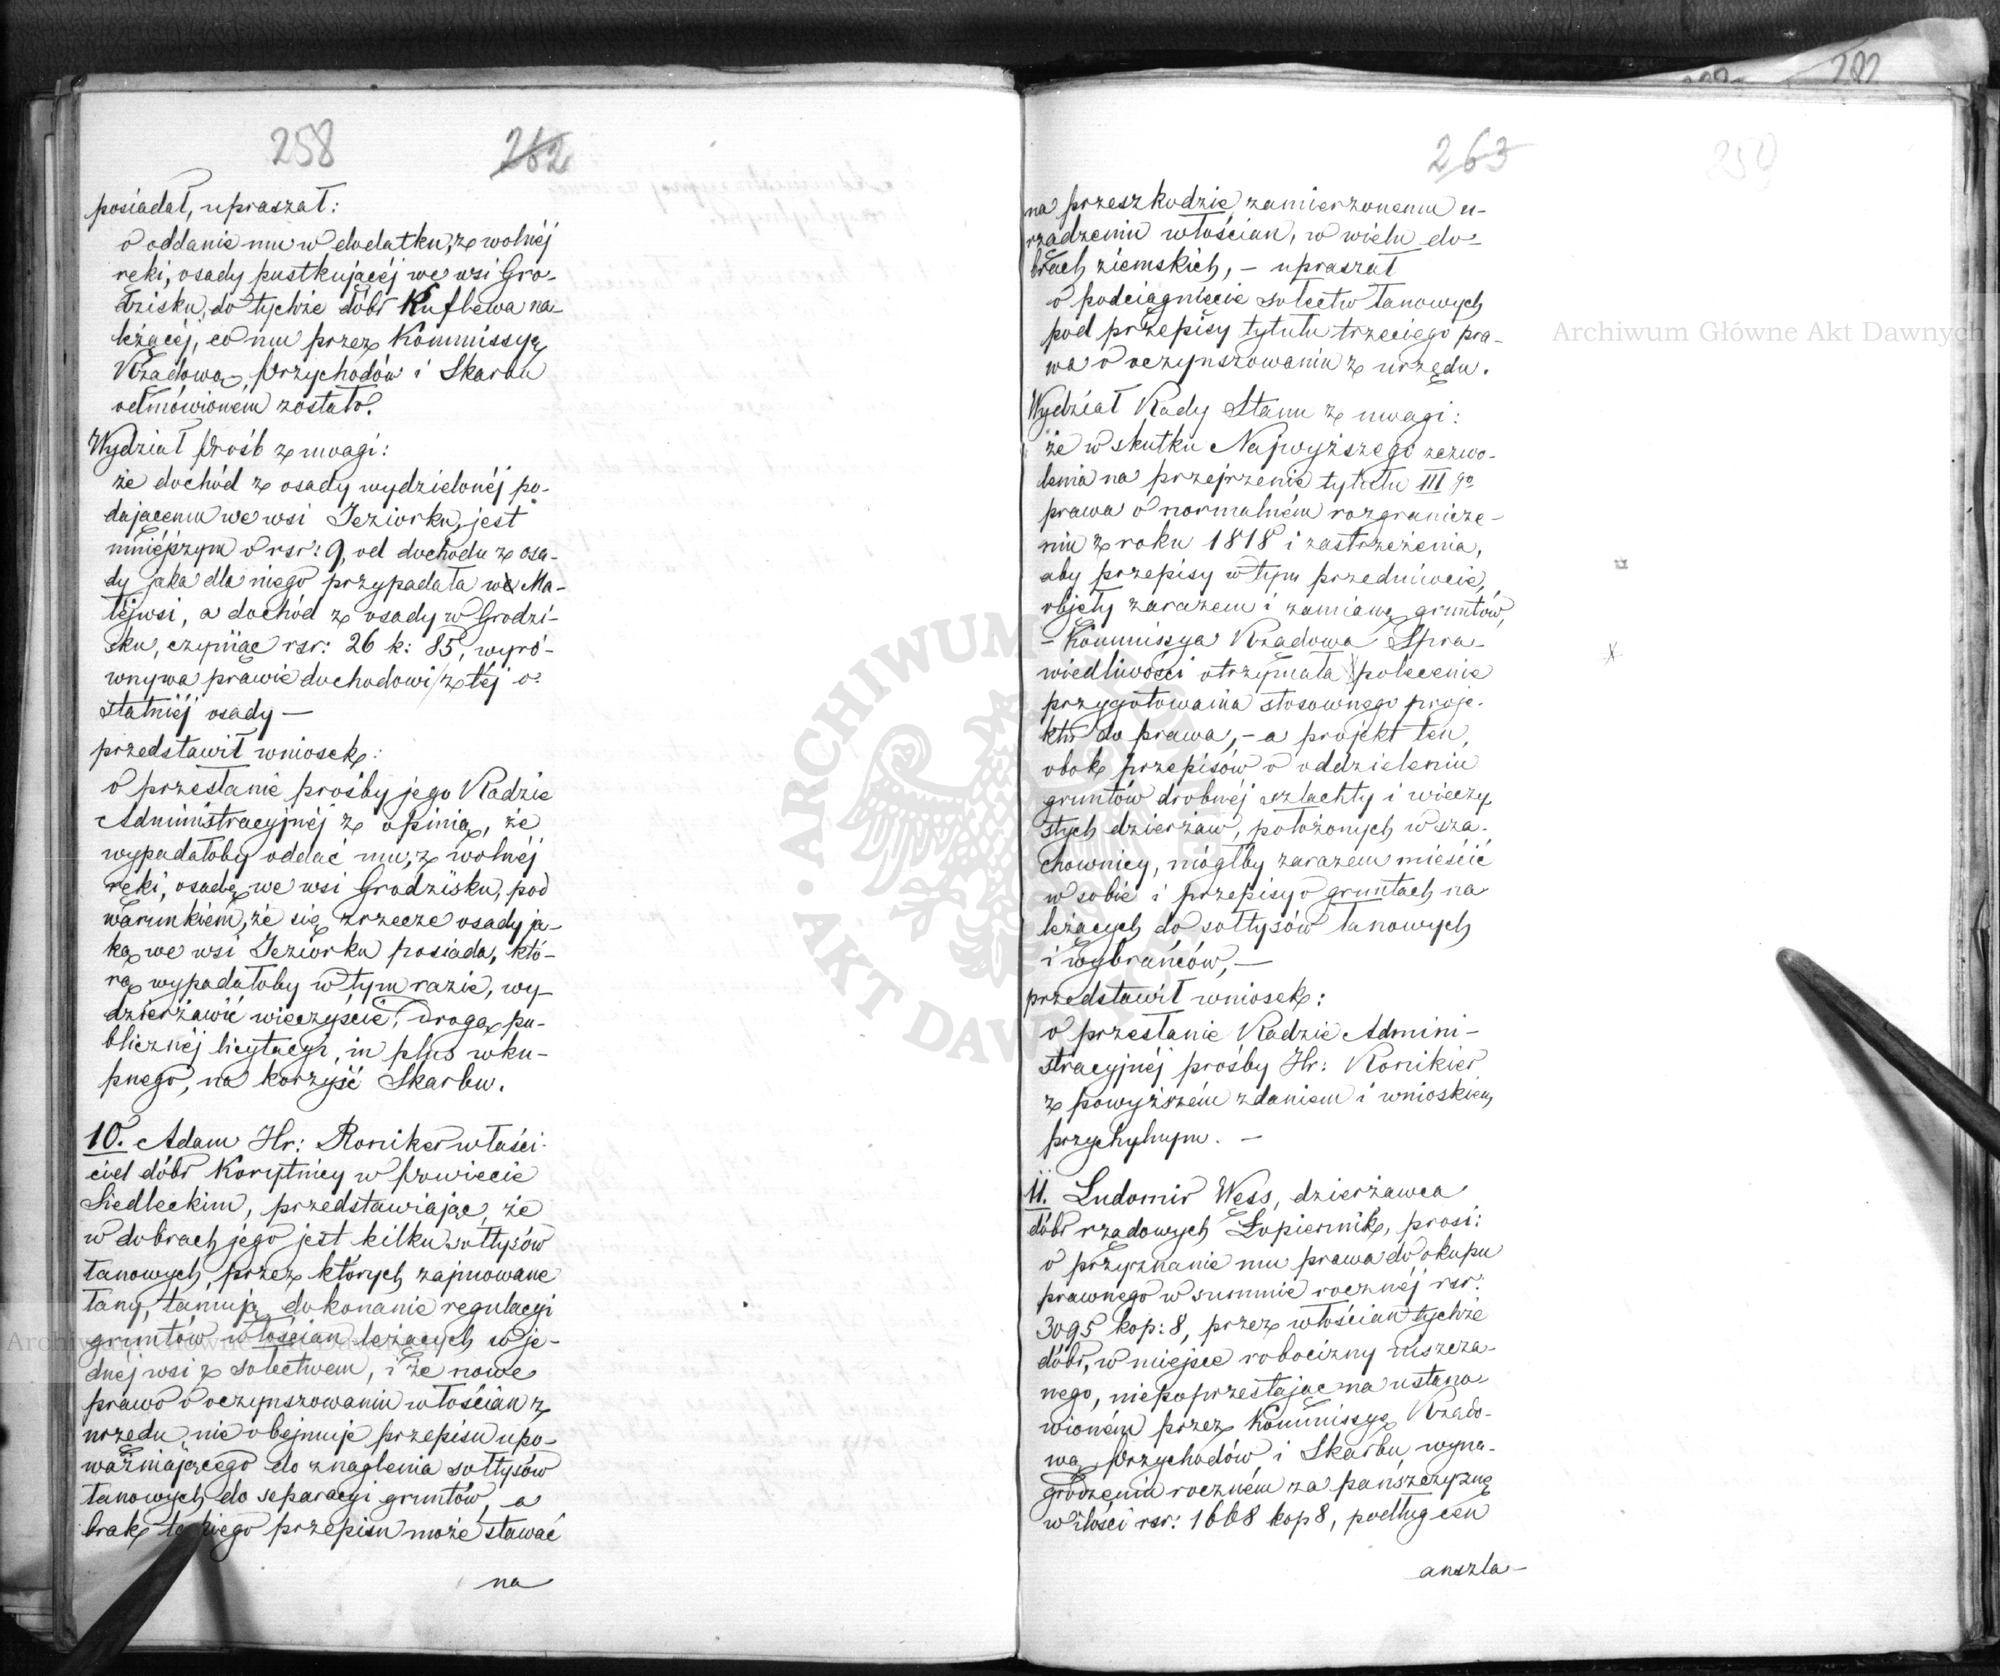 258 262
posiadał, upraszał:
o oddanie mu w dodatku, z wolnéj
ręki, osady pustkującéj we wsi Gro-
dzisku, do tychże dóbr Kuflewa na-
leżącéj, co mu przez Kommissyę
Rządową Przychodów i Skarbu
odmówionem zostało.
Wydział Próśb z uwagi:
że dochód z osady wydzielonéj po-
dającemu we wsi Jeziorku, jest
mniéjszym o rsr: 9, od dochodu z osa-
dy jaka dla niego przypadała we Ma-
łéjwsi, a dochód z osady w Grodzi-
sku, czyniąc rsr: 26 k: 85, wyró-
wnywa prawie dochodowi z téj o-
statniéj osady —
przedstawił wniosek:
o przesłanie prośby jego Radzie
Administracyjnéj z opinią, że
wypadałoby oddać mu, z wolnéj
ręki, osadę we wsi Grodzisku, pod
warunkiem, że się zrzecze osady ja-
ką we wsi Jeziorku posiada, któ-
rą wypadałoby w tym razie, wy-
dzierżawić wieczyście, drogą pu-
blicznéj licytacyi, in plus wku-
pnego, na korzyść Skarbu.
10. Adam Hr: Roniker właści-
ciel dóbr Korytnicy w Powiecie
Siedleckim, przedstawiając, że
w dobrach jego jest kilku sołtysów
łanowych, przez których zajmowane
łany, tamują dokonanie regulacyi
gruntów włościan leżących w je-
dnéj wsi z sołectwem, i że nowe
prawo o oczynszowaniu włościan z
urzędu, nie obejmuje przepisu upo-
ważniającego do znaglenia sołtysów
łanowych do separacyi gruntów, a
brak takiego przepisu może stawać
na
263 259
na przeszkodzie zamierzonemu u-
rządzeniu włościan, w wielu do-
brach ziemskich, — upraszał
o podciągnięcie sołectw łanowych
pod przepisy tytułu trzeciego pra-
wa o oczynszowaniu z urzędu.
Wydział Rady Stanu z uwagi:
że w skutku Najwyższego zezwo-
lenia na przejrzenie tytułu III go
prawa o normalném rozgranicze-
niu z roku 1818 i zastrzeżenia,
aby przepisy w tym przedmiocie,
objęły zarazem i zamianę gruntów,
— Kommissya Rządowa Spra-
wiedliwości otrzymała polecenie
przygotowania stosownego proje-
ktu do prawa, — a projekt ten,
obok przepisów o oddzieleniu
gruntów drobnéj szlachty i wieczy
stych dzierżaw, położonych w sza-
chownicy, mógłby zarazem mieścić
w sobie i przepisy o gruntach na
leżących do sołtysów łanowych
i wybrańców, —
przedstawił wniosek:
o przesłanie Radzie Admini-
stracyjnéj prośby Hr: Ronikier
z powyższém zdaniem i wnioskiem
przychylnym. —
11. Ludomir Wess, dzierżawca
dóbr rządowych Łopiennik, prosi:
o przyznanie mu prawa do okupu
prawnego w summie rocznéj rsr:
3095 kop: 8, przez włościan tychże
dóbr, w miejsce robocizny uiszcza-
nego, niepoprzestając na ustano-
wioném przez Kommissyę Rządo-
wą Przychodów i Skarbu wyna-
grodzeniu roczném za pańszczyznę
w ilości rsr: 1668 kop 8, podług cen
anszla-
Archiwum Główne Akt Dawnych
Archiwum Główne Akt Dawnych
ARCHIWUM GŁÓWNE AKT DAWNYCH